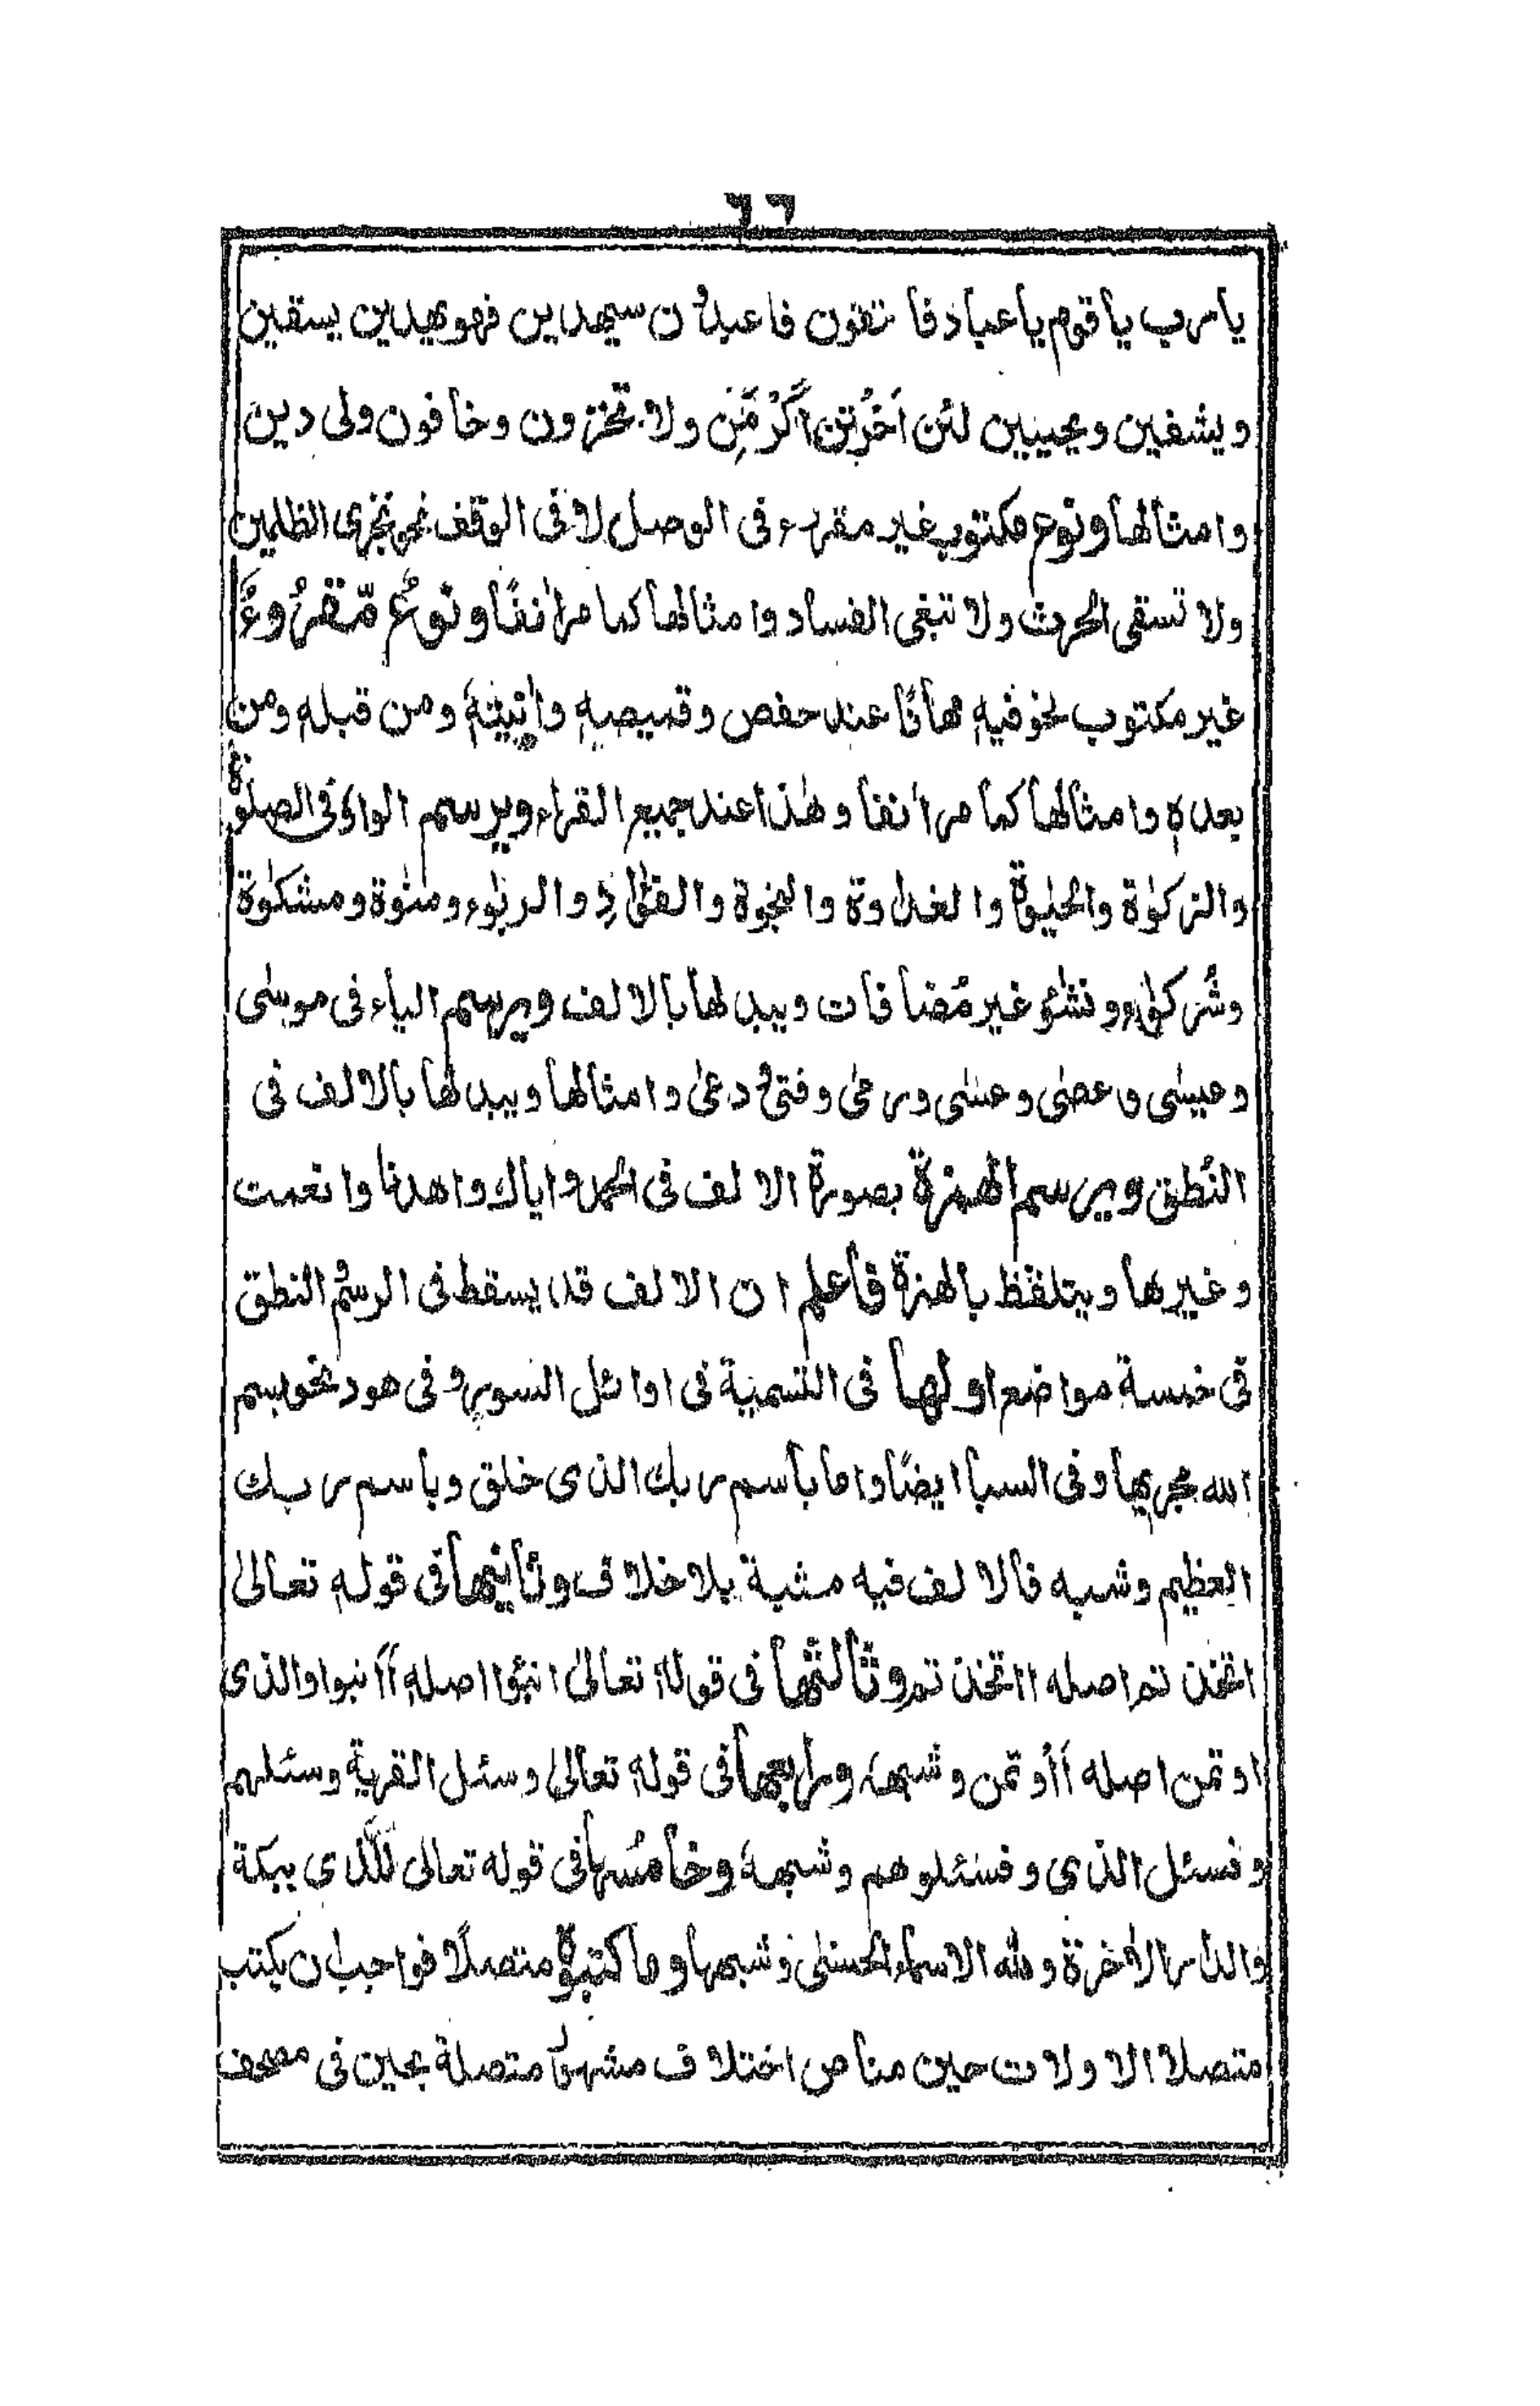 ٦٦
يا رب يا قوم يا عباد فا تقون فا عبدون سيهدين فهو يهدين يسقين
ويشفين ويحيين لئن اَخَّرْتَنِ اَكْرَمَنِ ولا تخزون وخافون ولى دين
وامثالها ونوع مكتوب غير مقروء فى الوصل لا فى الوقف نحو نجزى الظلمين
ولا تسقى الحرث ولا تبغى الفساد وامثالها كما مر اٰنفًا ونوعٌ مّقرُوءٌ
غير مكتوب نحو فيهٖ مهانًا عند حفص وقميصهٖ واٰنيتهٖ ومن قبلهٖ ومن
بعدهٖ وامثالها كما مر اٰنفا وهٰذا عند جميع القراء ويرسم الواو فى الصلوٰة
والزكوٰة والحيوٰة والغدوة والنجوة والقلى والربوٰء ومنوٰة ومشكوٰة
وشُركؤا ونشؤ غير مُضافات ويبدلها بالالف ويرسم الياء فى موسٰى
وعيسٰى وعصٰى وعسٰى ورمىٰ وفتىٰ ودعىٰ وامثالها ويبدلها بالالف فى
النُطق ويرسم الهمزة بصورة الالف فى الحمد واياك واهدنا وانعمت
وغيرها ويتلفّظ بالهمزة فاعلم ان الالف قد يسقط فى الرسم والنطق
فى خمسة مواضع اولها فى التسمية فى اوائل السور وفى هود نحو بسم
الله مجريها وفى السبا ايضًا واما باسم ربك الذى خلق وباسم ربك
العظيم وشبه فالالف فيه مثبة بلا خلاف وثانيها فى قولهٖ تعالىٰ
اتخذتم اصله ااتخذتم وثالثها فى قولهٖ تعالىٰ انبؤا اصلهٖ أأنبوا والذى
اوتمن اصله أاُوتمن وشبهه ورابعها فى قولهٖ تعالىٰ وسئل القرية وسئلهم
وفسئل الذى وفسئلوهم وشبهه وخامسها فى قوله تعالى للّذى ببكة
وللدار الاٰخرة ولله الاسماء الحسنٰى وشبهها وما كتبوٰة متصلًا فواجب ان يكتب
متصلا الا ولات حين مناص اختلاف مشهور متصلة بحين فى مصحف